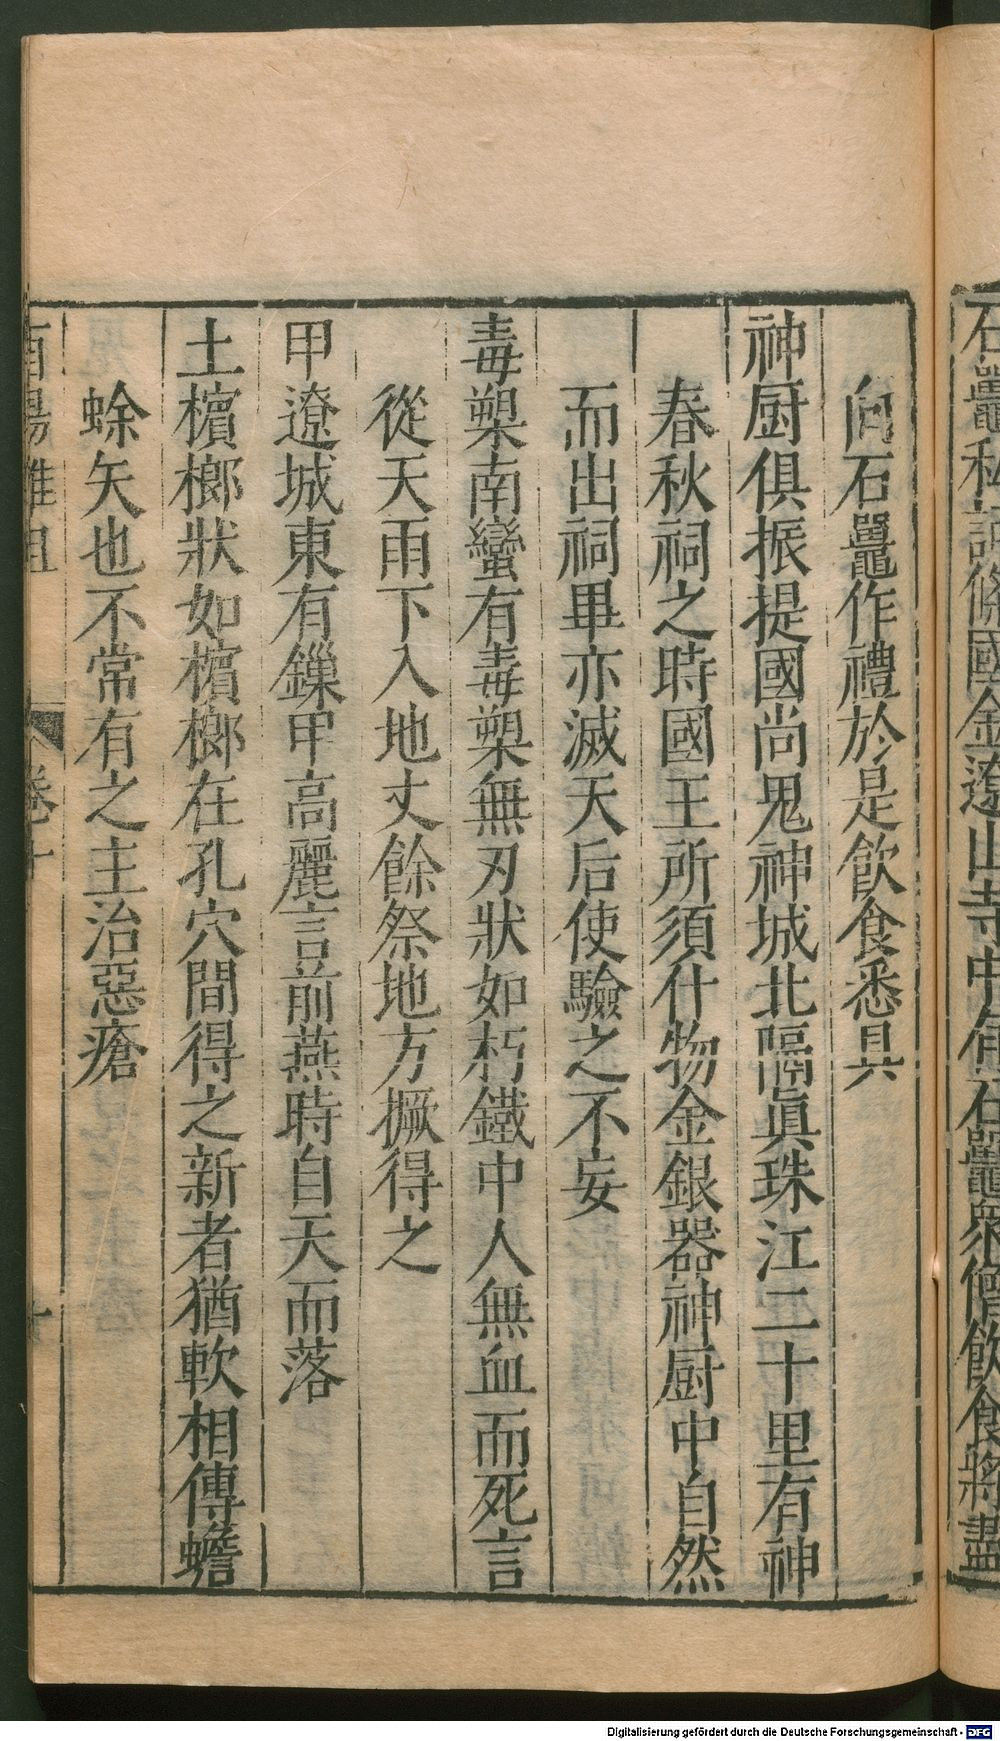 石鼉私訶條國金遼山寺中有石鼉衆僧飲食將盡
向石鼉作禮於是飲食悉具
神厨俱振提國尚鬼神城北隔眞珠江二十里有神
春秋祠之時國王所須什物金銀器神厨中自然
而出祠畢亦滅天后使驗之不妄
毒槊南蠻有毒槊無刃狀如朽鐵中人無血而死言
從天雨下入地丈餘祭地方撅得之
甲遼城東有鏁甲高麗言前燕時自天而落
土檳榔狀如檳榔在孔穴間得之新者猶軟相傳蟾
蜍矢也不常有之主治惡瘡
酉陽雜俎 卷十 十
Digitalisierung gefördert durch die Deutsche Forschungsgemeinschaft - DFG